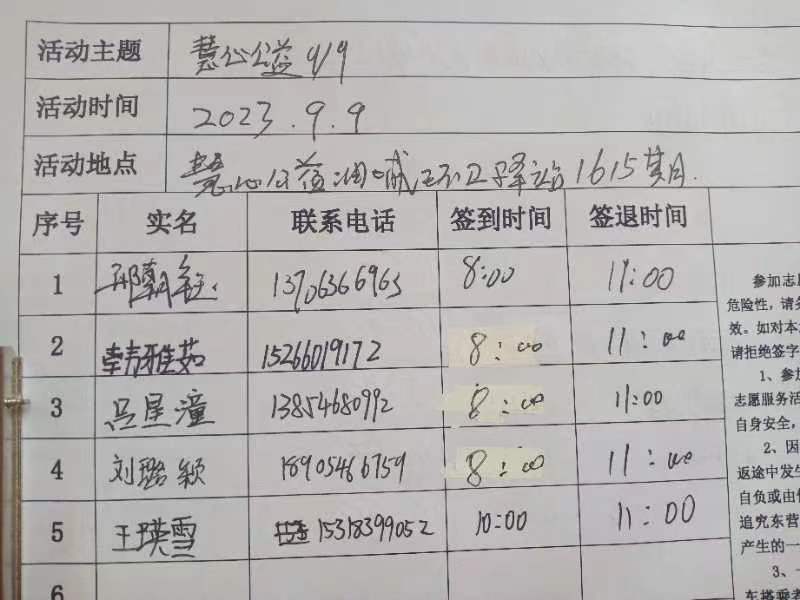 活动主题 慧心公益 9/9
活动时间 2023.9.9
活动地点 慧心公益 1615期
序号 实名 联系电话 签到时间 签退时间
1 13706366963 8:00 11:00
2 韩雅茹 15266019172 8:00 11:00
3 吕星潼 13854680992 8:00 11:00
4 刘璐颖 18905466759 8:00 11:00
5 王瑛雪 15318399052 10:00 11:00
6
参加志愿
危险性,请务
效。如对本
请拒绝签字
1、参加
志愿服务活
自身安全,
2、因
返途中发生
自负或由
追究东营
产生的一
3、
车搭乘者